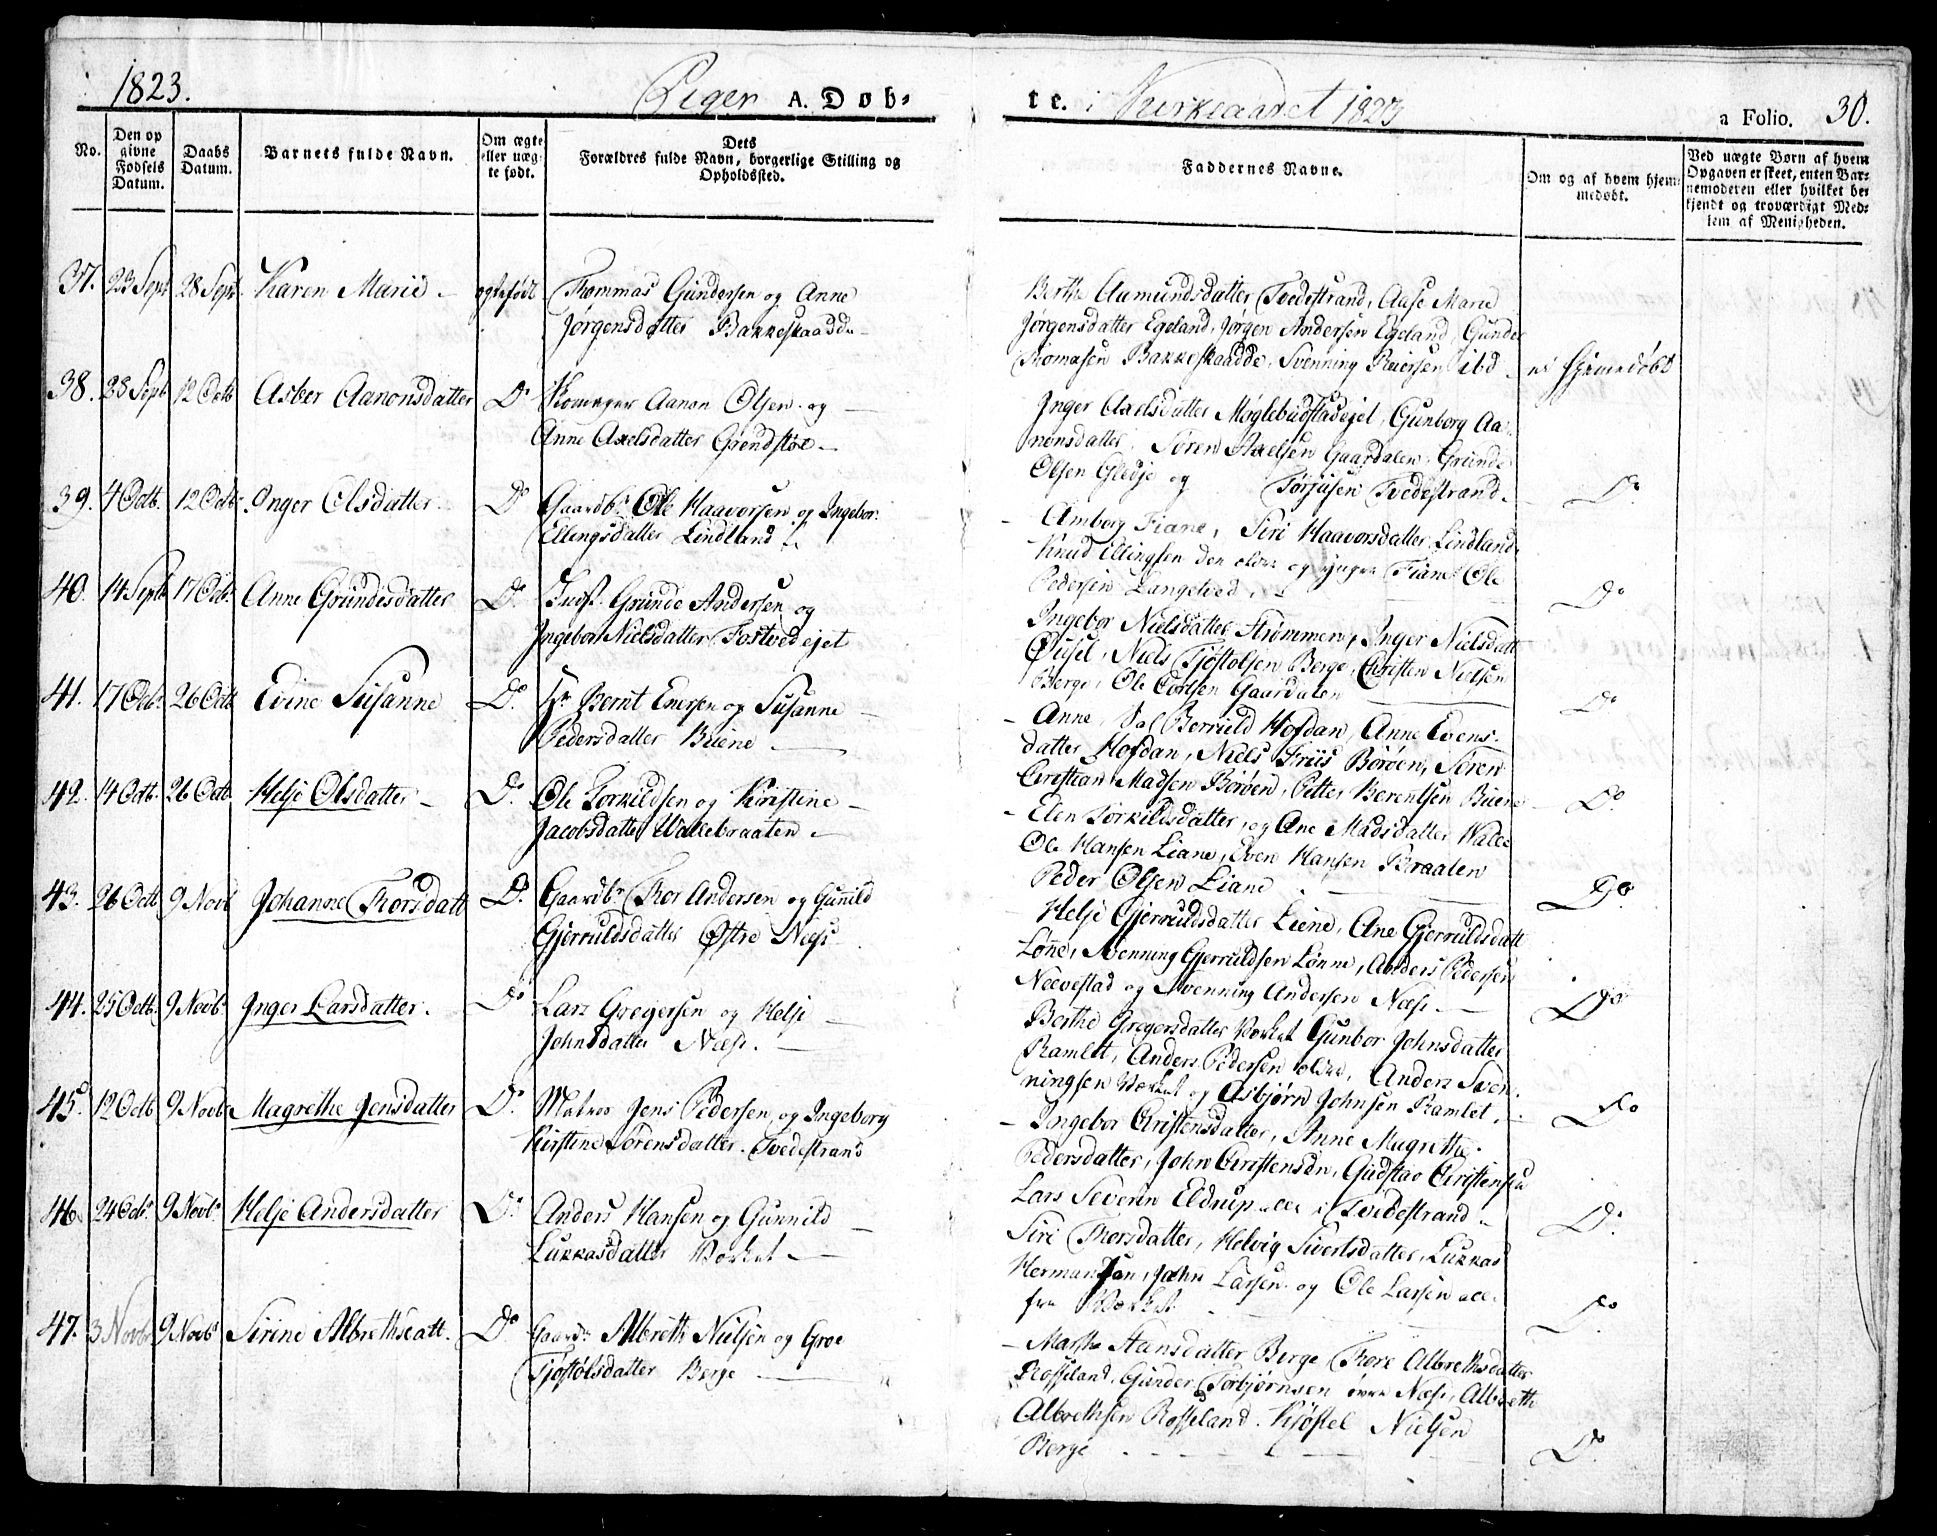 1823.
Piger A. Døb-
te. i Kirkeaaret 1823
a Folio. 30.
No.
Den op
givne
Fødsels
Datum.
Daabs
Datum.
Barnets fulde Navn.
Om ægte
eller uæg-
te født.
Dets
Forældres fulde Navn, borgerlige Stilling og
Opholdssted.
Faddernes Navne.
Om og af hvem hjem-
medøbt.
Ved uægte Børn af hvem
Opgaven er skeet, enten Bar-
nemoderen eller hvilket be-
kjendt og troværdigt Med-
lem af Menigheden.
37. 23 Sept 28 Sept Karen Marie - ægtefødt Thommas Gundersen og Anne
Jørgensdatter Bakkeskaadde -
Berthe Aamundsdatter Tvedestrand, Aase Marie
Jørgensdatter Egeland, Jørgen Andersen Egeland, Gunder
Thomasen Bakkeskaadde, Svenning Reiersen ibd - ei hjemedøbt
38. 28 Sept 12 Octb Asber Aanonsdatter Do Aanon Olsen og
Anne Axelsdatter Grendstøl -
Inger Axelsdatter Møglebudstadejet, Gunborg Aa-
nonsdatter, Søren Axelsen Gaardalen, Grunde
Olsen Gledje og Torjusen Tvedestrand. Do
39. 4 Octb. 12 Octb Inger Olsdatter. Do Gaardbr Ole Haavorsen og Ingebor
Ellingsdatter Lindland
- Amborg Fiane, Siri Haavorsdatter Lindland,
Knud Ellingsen den eldre og yngre Fiane Ole
Pedersen Langeland Do
40. 14 Septb 17 Octb. Anne Grundesdatter Do Indst Grunde Andersen og
Ingebor Nielsdatter Fostvedejet
Ingebor Nielsdatter Strømmen, Inger Nielsdatt
Øusel, Niels Tjøstolsen Berge, Christen Nielsen
Berge, Ole Gaardalen Do
41. 17 Octb. 26 Octb Edine Susanne Do. Hr Bernt Enersen og Susanne
Pedersdatter Buene -
- Anne, Sal Berruld Hofdan, Anne Evens-
datter Hofdan, Niels Friis Børøen, Søren
Christian Madsen Børøen, Petter Berentsen Buene Do
42. 14 Octb. 26 Octb. Helje Olsdatter - Do. Ole Torkildsen og Kristine
Jacobsdatter Wallebraaten -
- Elen Torkildsdatter, og Ane Madsdatter Walle
Ole Hansen Liane, Even Hansen Braaten
Peder Olsen Liane Do
43. 26 Octb 9 Novb Johanne Thorsdatt Do. Gaardbr Thor Andersen og Gunild
Gjerruldsdatter Østre Næss
Helje Gjerruldsdatter Liene, Ane Gjerruldsdatt
Lønne, Svenning Gjerruldsen Lønne, Anders Pedersen
Nævestad og Svenning Andersen Næss - Do
44. 25 Octb. 9 Novb. Inger Larsdatter. Do Lars Gregersen og Helje
Johnsdatter Næss. -
Berthe Gregersdatter Værket Gunbor Johnsdatter
Ramlet, Anders Pedersen Anders Sven-
ningsen Værket og Asbjørn Johnsen Ramlet. Do
45. 12 Octb 9 Novb Magrethe Jensdatter Do. Matros Jens Pedersen og Ingeborg
Kirstine Sørensdatter. Tvedestrand
- Ingebor Christensdatter, Anne Magrethe
Pedersdatter, John Christensdn, Gudstav Christensen
Lars Severin Eldrup alle i Tvedestrand Do
46. 24 Octb. 9 Novb. Helje Andersdatter Do. Anders Hansen og Gunnild
Lukkasdatter Værket -
Siri Thorsdatter, Helvig Sivertsdatter, Lukkas
Hermansen, John Larsen og Ole Larsen alle
fra Værket Do
47. 3 Novbr 9 Novb. Sirine Albrethsdatt. Do Gaardbr Albreth Nielsen og Groe
Tjøstolsdatter Berge -
- Marthe Steensdatter Berge, Thore Albrethsdatter
Rosseland, Gunder Torbjørnsen øvre Næss, Albreth
Albrethsen Rosseland. Kjøstel Nielsen
Berge Do.